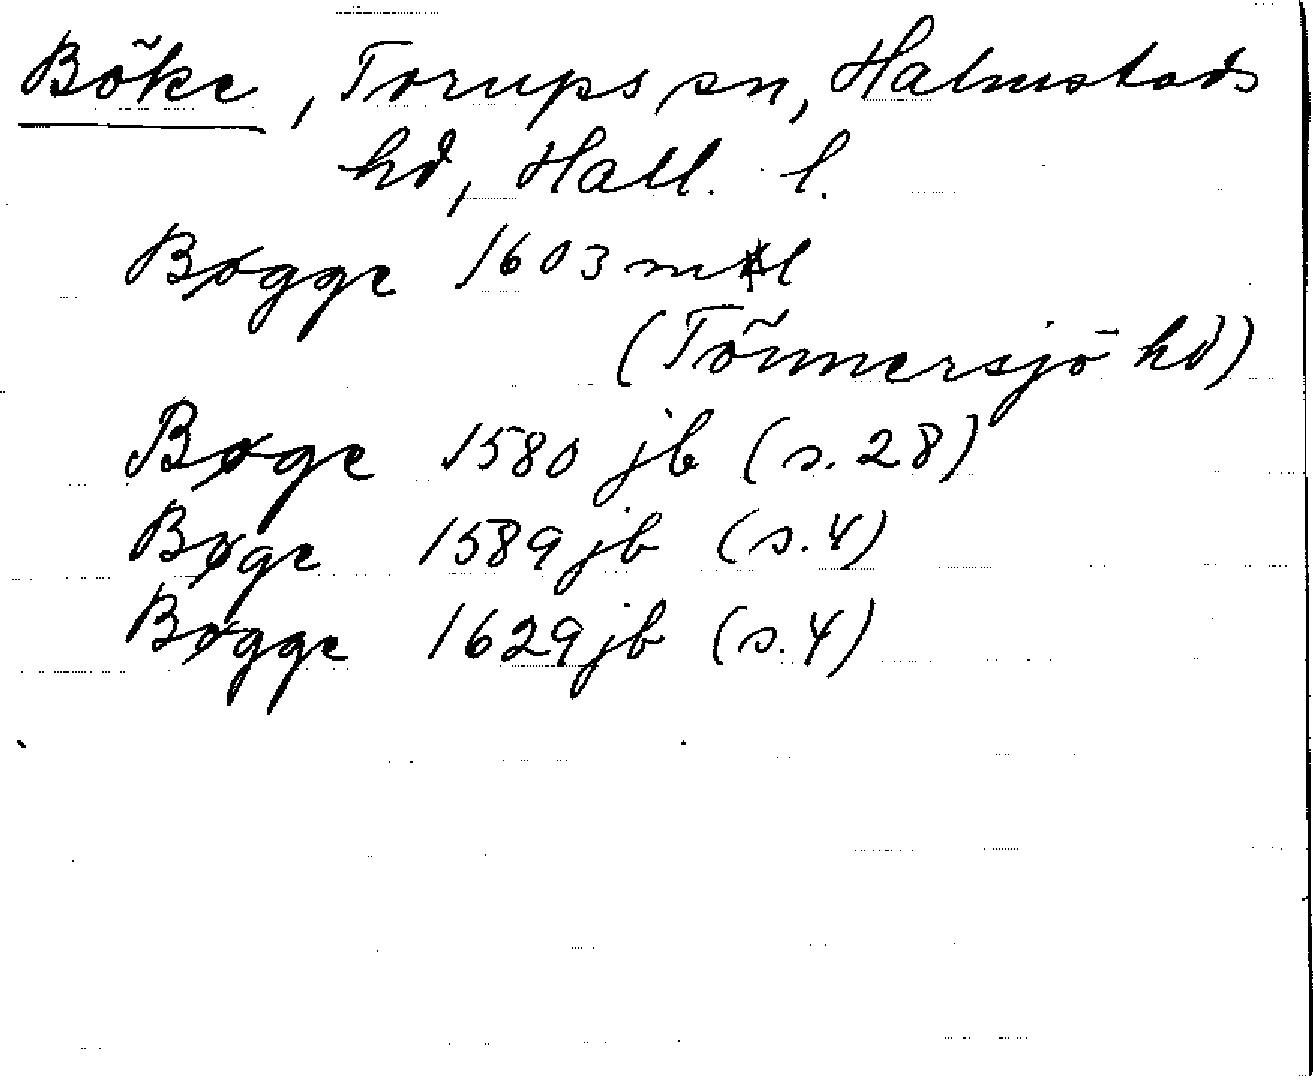 Böke, Torups sn, Halmstads
hd, Hall. l.
Bøgge 1603 mtl
(Tönnersjö hd)
Bøge 1580 jb (s. 28)
Bøge 1589 jb (s. 4)
Bøgge 1629 jb (s. 4)